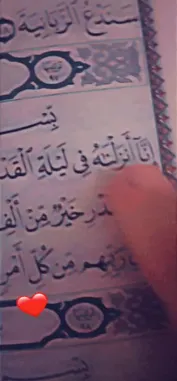 سَنَدْعُ الزَّبَانِيَةَ
بِسْـ
إِنَّا أَنزَلْنَاهُ فِي لَيْلَةِ الْقَدْ
ـدْرِ خَيْرٌ مِّنْ أَلْفِ
رَبِّهِم مِّن كُلِّ أَمْرٍ
بِسْـ